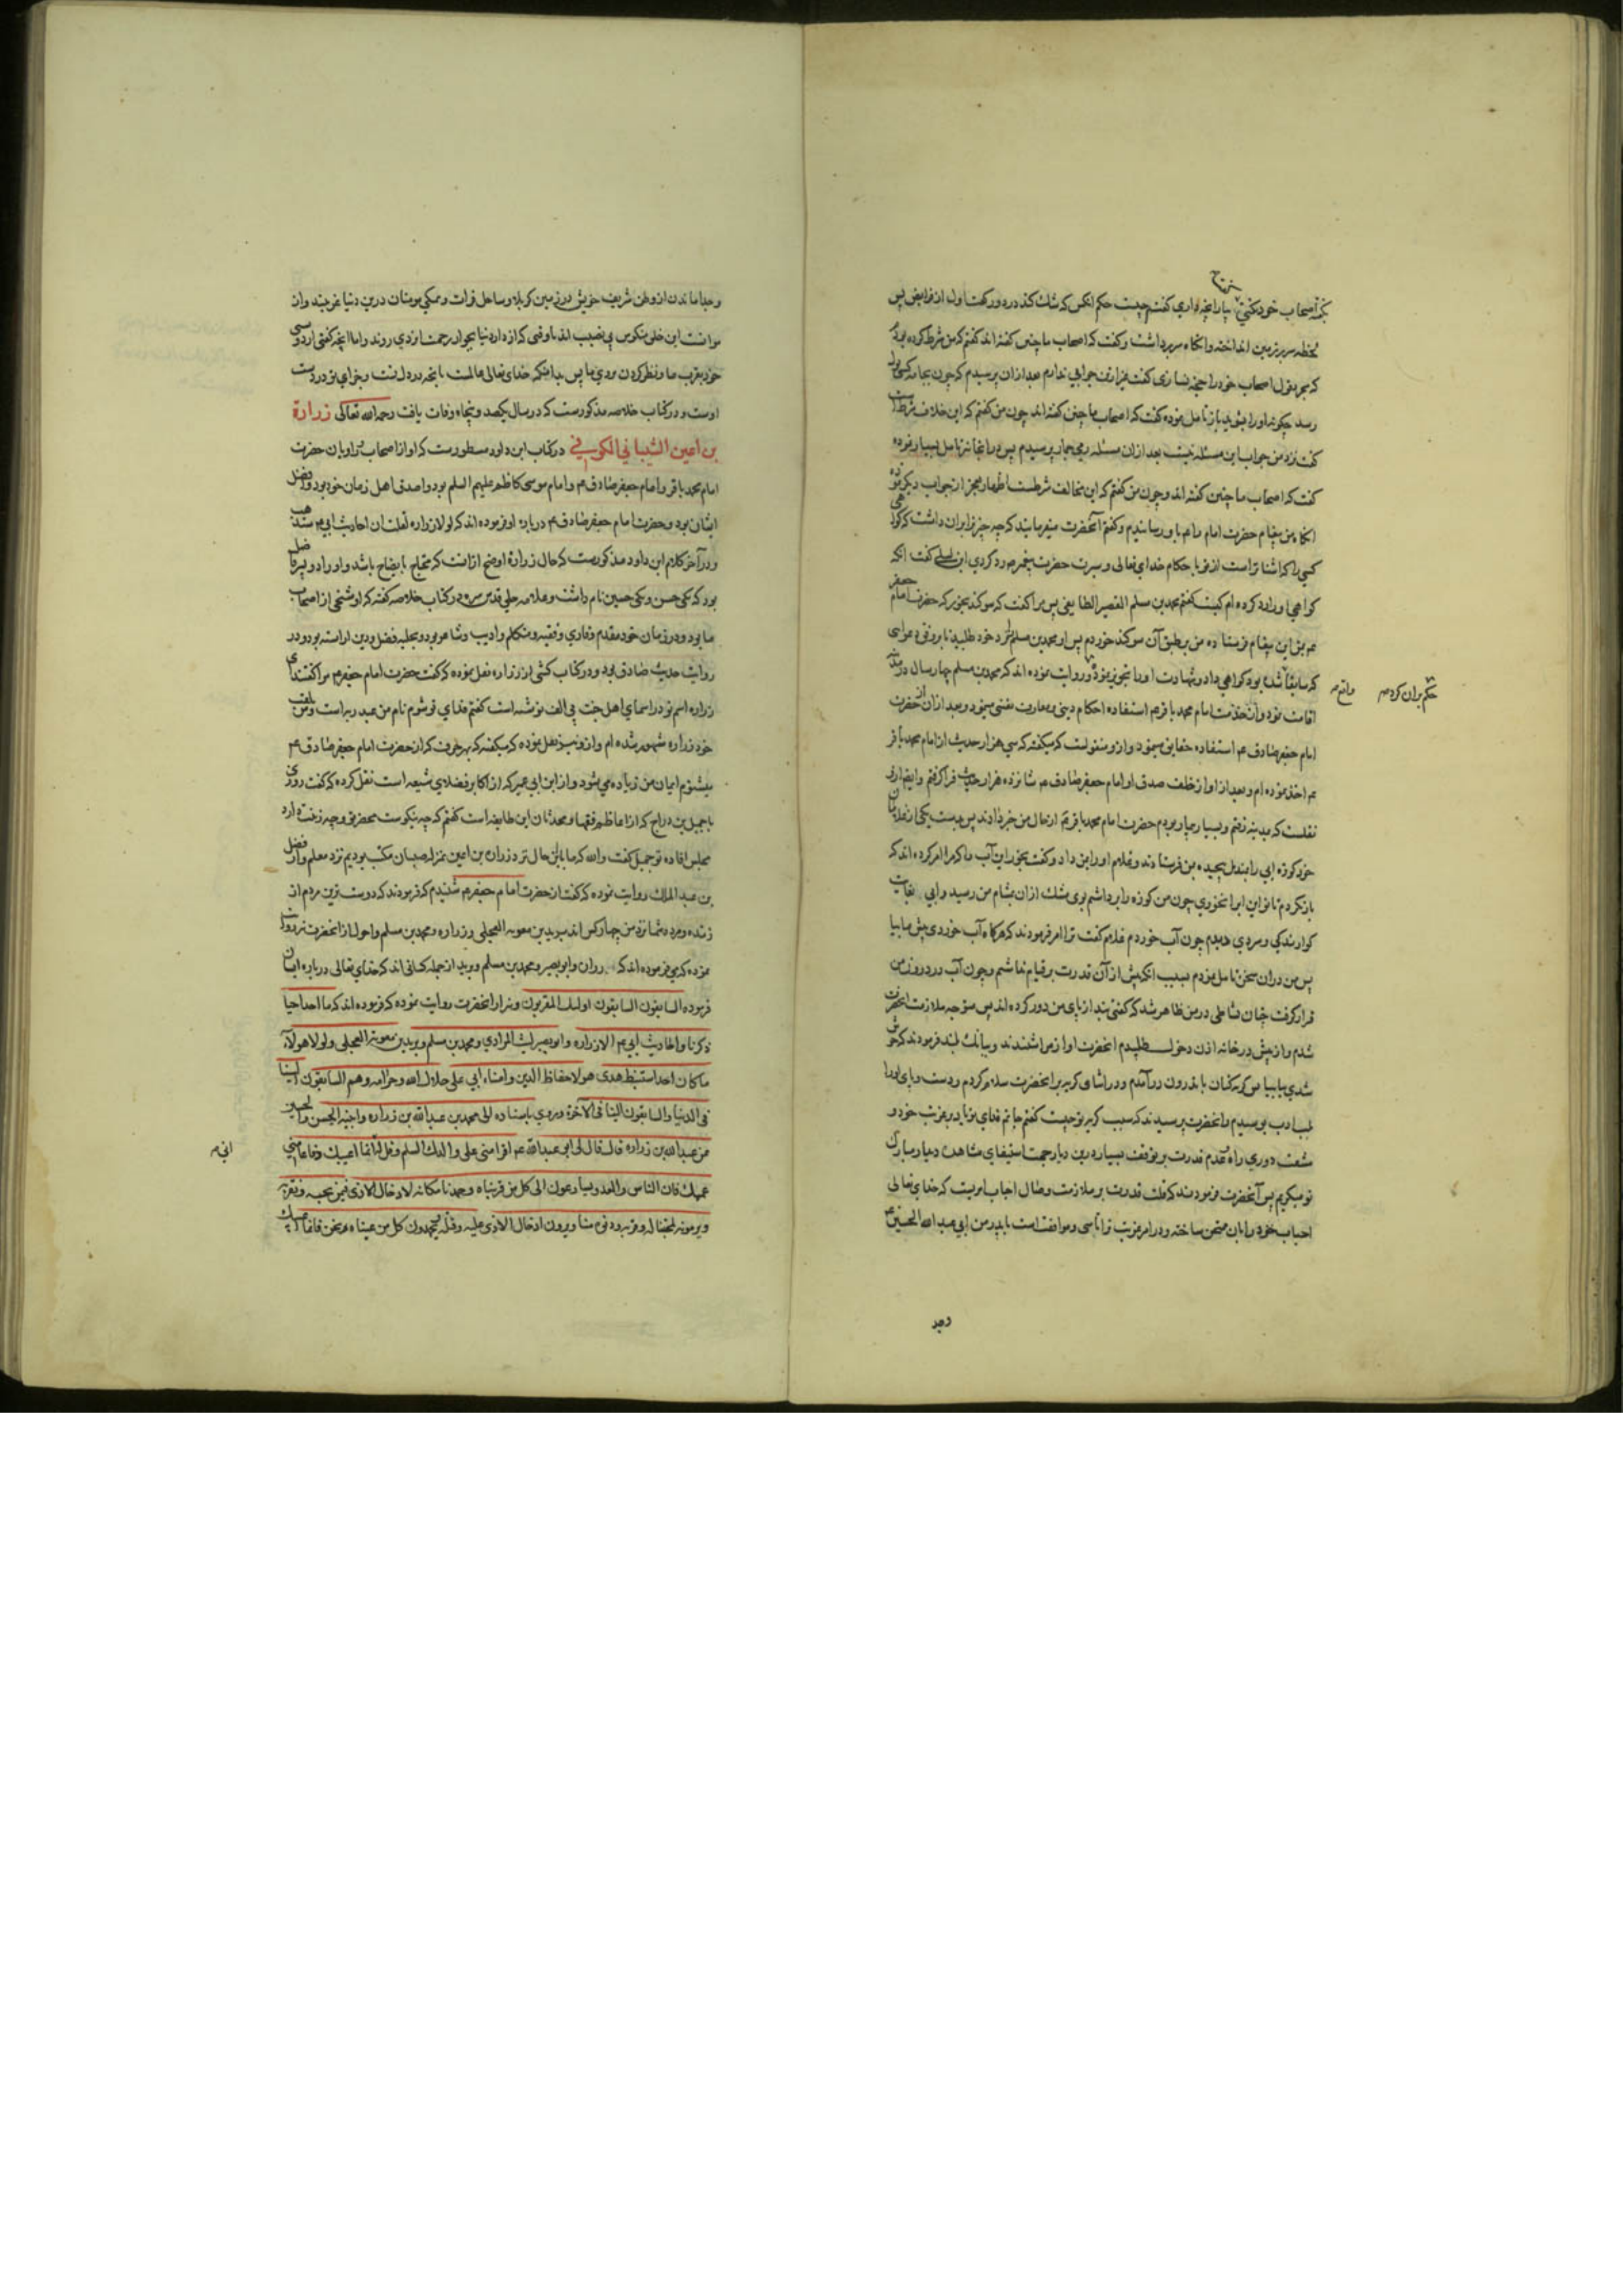 بگفته اصحاب خود نکنی بیار آنچه داری گفتم چیست حکم انکس که شک کند در دو رکعت اول از فرایض پس
لحظه سر بر زمین انداخته و انکاه سر برداشت و گفت که اصحاب ما چنین گفته اند گفتم که من شرط کرده بودم
که بر قول اصحاب خود را حجة نسازی گفت غیر ازین جوابی ندارم بعد ازان پرسیدم که چون بجامه کسی بول
رسد چگونه او را بشوید باز تامل نموده گفت که اصحاب ما چنین گفته اند چون من گفتم که این خلاف شرط است
گفت نزد من جواب این مسئله نیست بعد ازان مسئله رمی جمار پرسیدم پس در انجا نیز تامل بسیار نموده
گفت که اصحاب ما چنین گفته اند و چون من گفتم که این مخالف شرطست اظهار عجز از جواب دیگر نمود
انکاه من پیغام حضرت امام را عم باو رسانیدم و گفتم آنحضرت میفرمایند که چه چیز ترا بران داشت که گواهی
کسی را که اشناتر است از تو با حکام خدای تعالی و سیرت حضرت پیغمبر ص رد کردی ابن لیلی گفت انکه
گواهی او را رد کرده ام کیست گفتم محمد بن مسلم القصیر الطایفی پس مرا گفت که سوکند بخور که حضرت امام جعفر
عم بتو این پیغام فرستاده من بر طبق آن سوکند خوردم پس او محمد بن مسلم را نزد خود طلبید تا بر وفق دعوایی
که سابقا شده بود گواهی داد و شهادت او را تجویز نمود و روایت نموده اند که محمد بن مسلم چهار سال در مدینه
حکم بران کرده ص واقع ص
اقامت نمود و از خدمت امام محمد باقر عم استفاده احکام دینی و معارف یقینی مینمود و بعد ازان از حضرت
امام جعفر صادق عم استفاده حقایق مینمود و از و منقولست که میکفته که سی هزار حدیث از امام محمد باقر
عم اخذ نموده ام و بعد از او از خلف صدق او امام جعفر صادق عم شانزده هزار حدیث فرا گرفتم و ایضا از و
نقلست که مدینه رفتم و بسیار بیمار بودم حضرت امام محمد باقر عم از حال من خبر دادند پس بدست یکی از غلامان
خود کوزه ابی را بمندیل پیچیده بمن فرستادند و غلام او را بمن داد و گفت بخور این آب را که مرا امر کرده اند که
باز نکردم تا تو این ابرا نخوری چون من کوزه را برداشتم بوی مشک ازان بمشام من رسید و ابی بغایت
کوارندکی و سردی دیدم چون آب خوردم غلام گفت ترا امر فرمودند که هرکاه آب خوردی پیش ما بیا
پس من دران سخن تامل نمودم بسبب انکه پیش از آن قدرت بر قیام نداشتم و چون آب در درون من
قرار گرفت چنان نشاطی در من ظاهر شد که گفتی بند از پای من دور کرده اند پس متوجه ملازمت انحضرت
شدم و از پیش در خانه اذن دخول طلبیدم انحضرت اواز مرا شنیدند و ببانک بلند فرمودند که خوش
شدی بیا بیا من کریه کنان باندرون درآمدم و در اثنای کریه بر انحضرت سلام کردم و دست و پای او را
بلب ادب بوسیدم و انحضرت پرسیدند که سبب کریه تو چیست گفتم جانم فدای تو باد بر غربت خود و
مشقت دوری راه و عدم قدرت بر توقف بسیار درین دیار جهت استیفای مشاهده دیدار مبارک
تو میکریم پس آنحضرت فرمودند که قلت قدرت بر ملازمت و وصال احباب امریست که خدای تعالی
احباب خود را بان ممتحن ساخته و در امر غربت ترا تاسی و موافقت است با پدر من ابی عبد الله الحسین عم
وجدا
وجدا ماندن از وطن شریف خویش در زمین کربلا و ساحل فرات و همکی مومنان درین دنیا غریبند و از
موانست این خلق منکوس بی نصیب اند تا وقتی که از دار دنیا بجوار رحمت ایزدی روند و اما انچه گفتی از دوستی
خود بقرب ما و نظر کردن بروی ما پس بدانکه خدای تعالی عالمست بانچه در دل تست و جزای تو در دست
اوست و در کتاب خلاصه مذکورست که در سال یکصد و پنجاه وفات یافت رحمه الله تعالی زرارة
بن اعین الشیبانی الکوفی در کتاب ابن داود مسطورست که او از اصحاب و راویان حضرت
امام محمد باقر و امام جعفر صادق عم و امام موسی کاظم علیهم السلم بود و اصدق اهل زمان خود بود و افضل
ایشان بود و حضرت امام جعفر صادق عم درباره او فرموده اند که لولا زرارة لقلت ان احادیث ابی عم ستذهب
و در آخر کلام ابن داود مذکورست که حال زرارة اوضح ازانست که محتاج بایضاح باشد و او را دو پسر فاضل
بود که یکی حسن و یکی حسین نام داشت و علامه حلی قدس سره در کتاب خلاصه گفته که او شیخی از اصحاب
ما بود و در زمان خود مقدم و قاری و فقیه و متکلم و ادیب و شاعر بود و بحلیه فضل و دین اراسته بود و در
روایت حدیث صادق بود و در کتاب کشی از زراره نقل نموده که گفت حضرت امام جعفر عم مرا گفتند ای
زراره اسم تو در اسمای اهل جنت بی الف نوشته است گفتم فدای تو شوم نام من عبد ربه است و من بلقب
خود زراره مشهور شده ام و از و نیز نقل نموده که میکفته که بهر حرف که از حضرت امام جعفر صادق عم
میشنوم ایمان من زیاده می شود و از ابن ابی عمیر که از اکابر فضلای شیعه است نقل کرده که گفت روزی
با جمیل بن دراج که از اعاظم فقها و محدثان این طایفه است گفتم که چه نیکوست محضر تو و چه زینت دارد
مجلس افاده تو جمیل گفت والله که ما با این حال نزد زراره بن اعین بمنزله صبیان مکتب بودیم نزد معلم و از فضل
بن عبد الملک روایت نموده که گفت از حضرت امام جعفر عم شنیدم که فرمودند که دوست ترین مردم از
زنده و مرده شما نزد من چهار کس اند برید بن معویه العجلی و زراره و محمد بن مسلم و احول از انحضرت نیز روایت
نموده که می فرموده اند که زراره و ابو بصیر و محمد بن مسلم و برید از جمله کسانی اند که خدای تعالی درباره ایشان
فرموده السابقون السابقون اولئک المقربون و نیز از انحضرت روایت نموده که فرموده اند که ما احد احیا
ذکرنا و احادیث ابی عم الا زراره و ابو بصیر لیث المرادی و محمد بن مسلم و برید بن معویة العجلی و لولا هولاء
ما کان احد استنبط هدی هولا حفاظ الدین و امناء ابی علی حلال الله و حرامه و هم السابقون الینا
فی الدنیا و السابقون الینا فی الآخرة و مروی باسناده الی محمد بن عبدالله بن زراره و ابنیه الحسن و الحسین
عن عبدالله بن زراره قال قال لی ابو عبدالله عم اقرا منی علی والدک السلم و قل له انما اعیبک دفاعا منی
عنک فان الناس و العدو یسارعون الی کل من قربناه و حمدنا مکانه لادخال الاذی فیمن نحبه و نقربه
و یرمونه لمحبتنا له و قربه و دنوه منا و یرون ادخال الاذی علیه و قتله و یحمدون کل من عبناه نحن فانما اعیبک